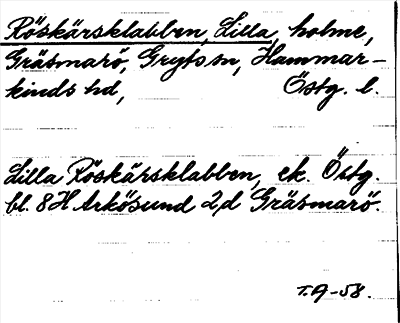 Röskärsklabben, Lilla, holme,
Gräsmarö, Gryts sn, Hammar-
kinds hd, Östg. l.
Lilla Röskärsklabben, ek. Östg.
bl. 8H Arkösund 2d Gräsmarö.
T.A-58.